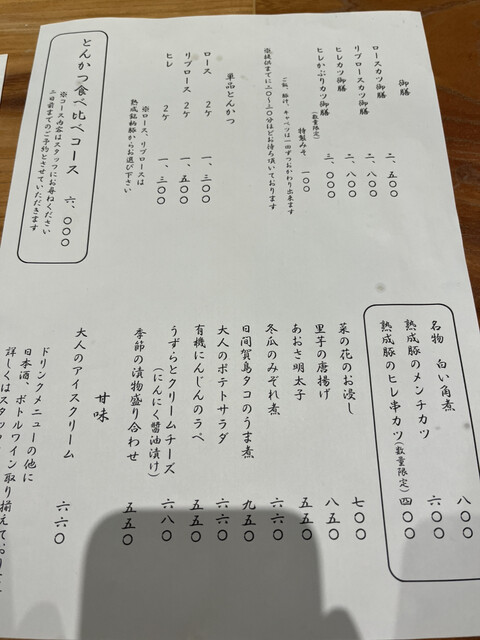 御膳
ロースカツ御膳 二、五〇〇
リブロースカツ御膳 二、八〇〇
ヒレカツ御膳 二、八〇〇
ヒレかぶりカツ御膳 三、〇〇〇
(数量限定)
特製みそ 一〇〇
ご飯、豚汁、キャベツは一回ずつおかわり出来ます
※提供までに二〇~三〇分ほどお待ち頂いております
単品とんかつ
ロース 2ケ 一、三〇〇
リブロース 2ケ 一、五〇〇
ヒレ 2ケ 一、三〇〇
※ロース、リブロースは
熟成銘柄豚からお選び下さい
とんかつ食べ比べコース 六、〇〇〇
※コース内容はスタッフにお尋ねください
二日前までのご予約とさせていただきます
名物 白い角煮 八〇〇
熟成豚のメンチカツ 六〇〇
熟成豚のヒレ串カツ(数量限定) 四〇〇
菜の花のお浸し 七〇〇
里芋の唐揚げ 八五〇
あおさ明太子 五五〇
冬瓜のみぞれ煮 六六〇
日間賀島タコのうま煮 九五〇
大人のポテトサラダ 六六〇
有機にんじんのラペ 五五〇
うずらとクリームチーズ 六八〇
(にんにく醤油漬け)
季節の漬物盛り合わせ 五五〇
甘味
大人のアイスクリーム 六六〇
ドリンクメニューの他に
日本酒、ボトルワイン取り揃えており
詳しくはスタッフ